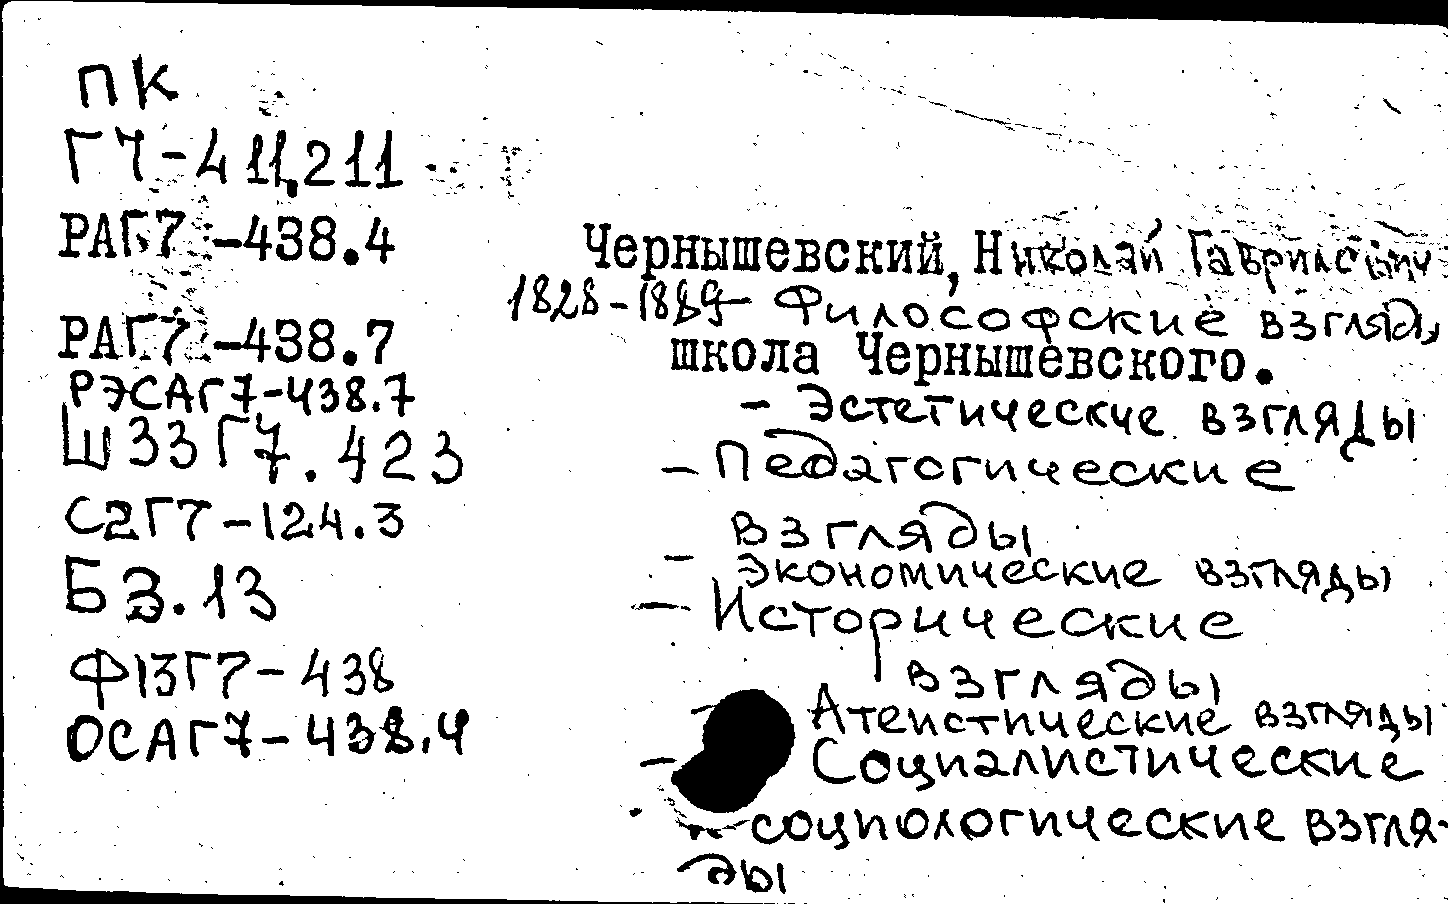 ПК
Г7-411.211
РАГ7-438.4
РАГ7-438.7
РЭСАГ7-438.7
Ш33Г7.423
С2Г7-124.3
Б3.13
Ф13Г7-438
ОСАГ7-438.4
Чернышевский, Николай Гаврилович
1828-1889- Философские взгляды,
школа Чернышевского.
- Эстетические взгляды
- Педагогические
взгляды
- Экономические взгляды
- Исторические
взгляды
- Атеистические взгляды
- Социалистические
социологические взгля-
ды